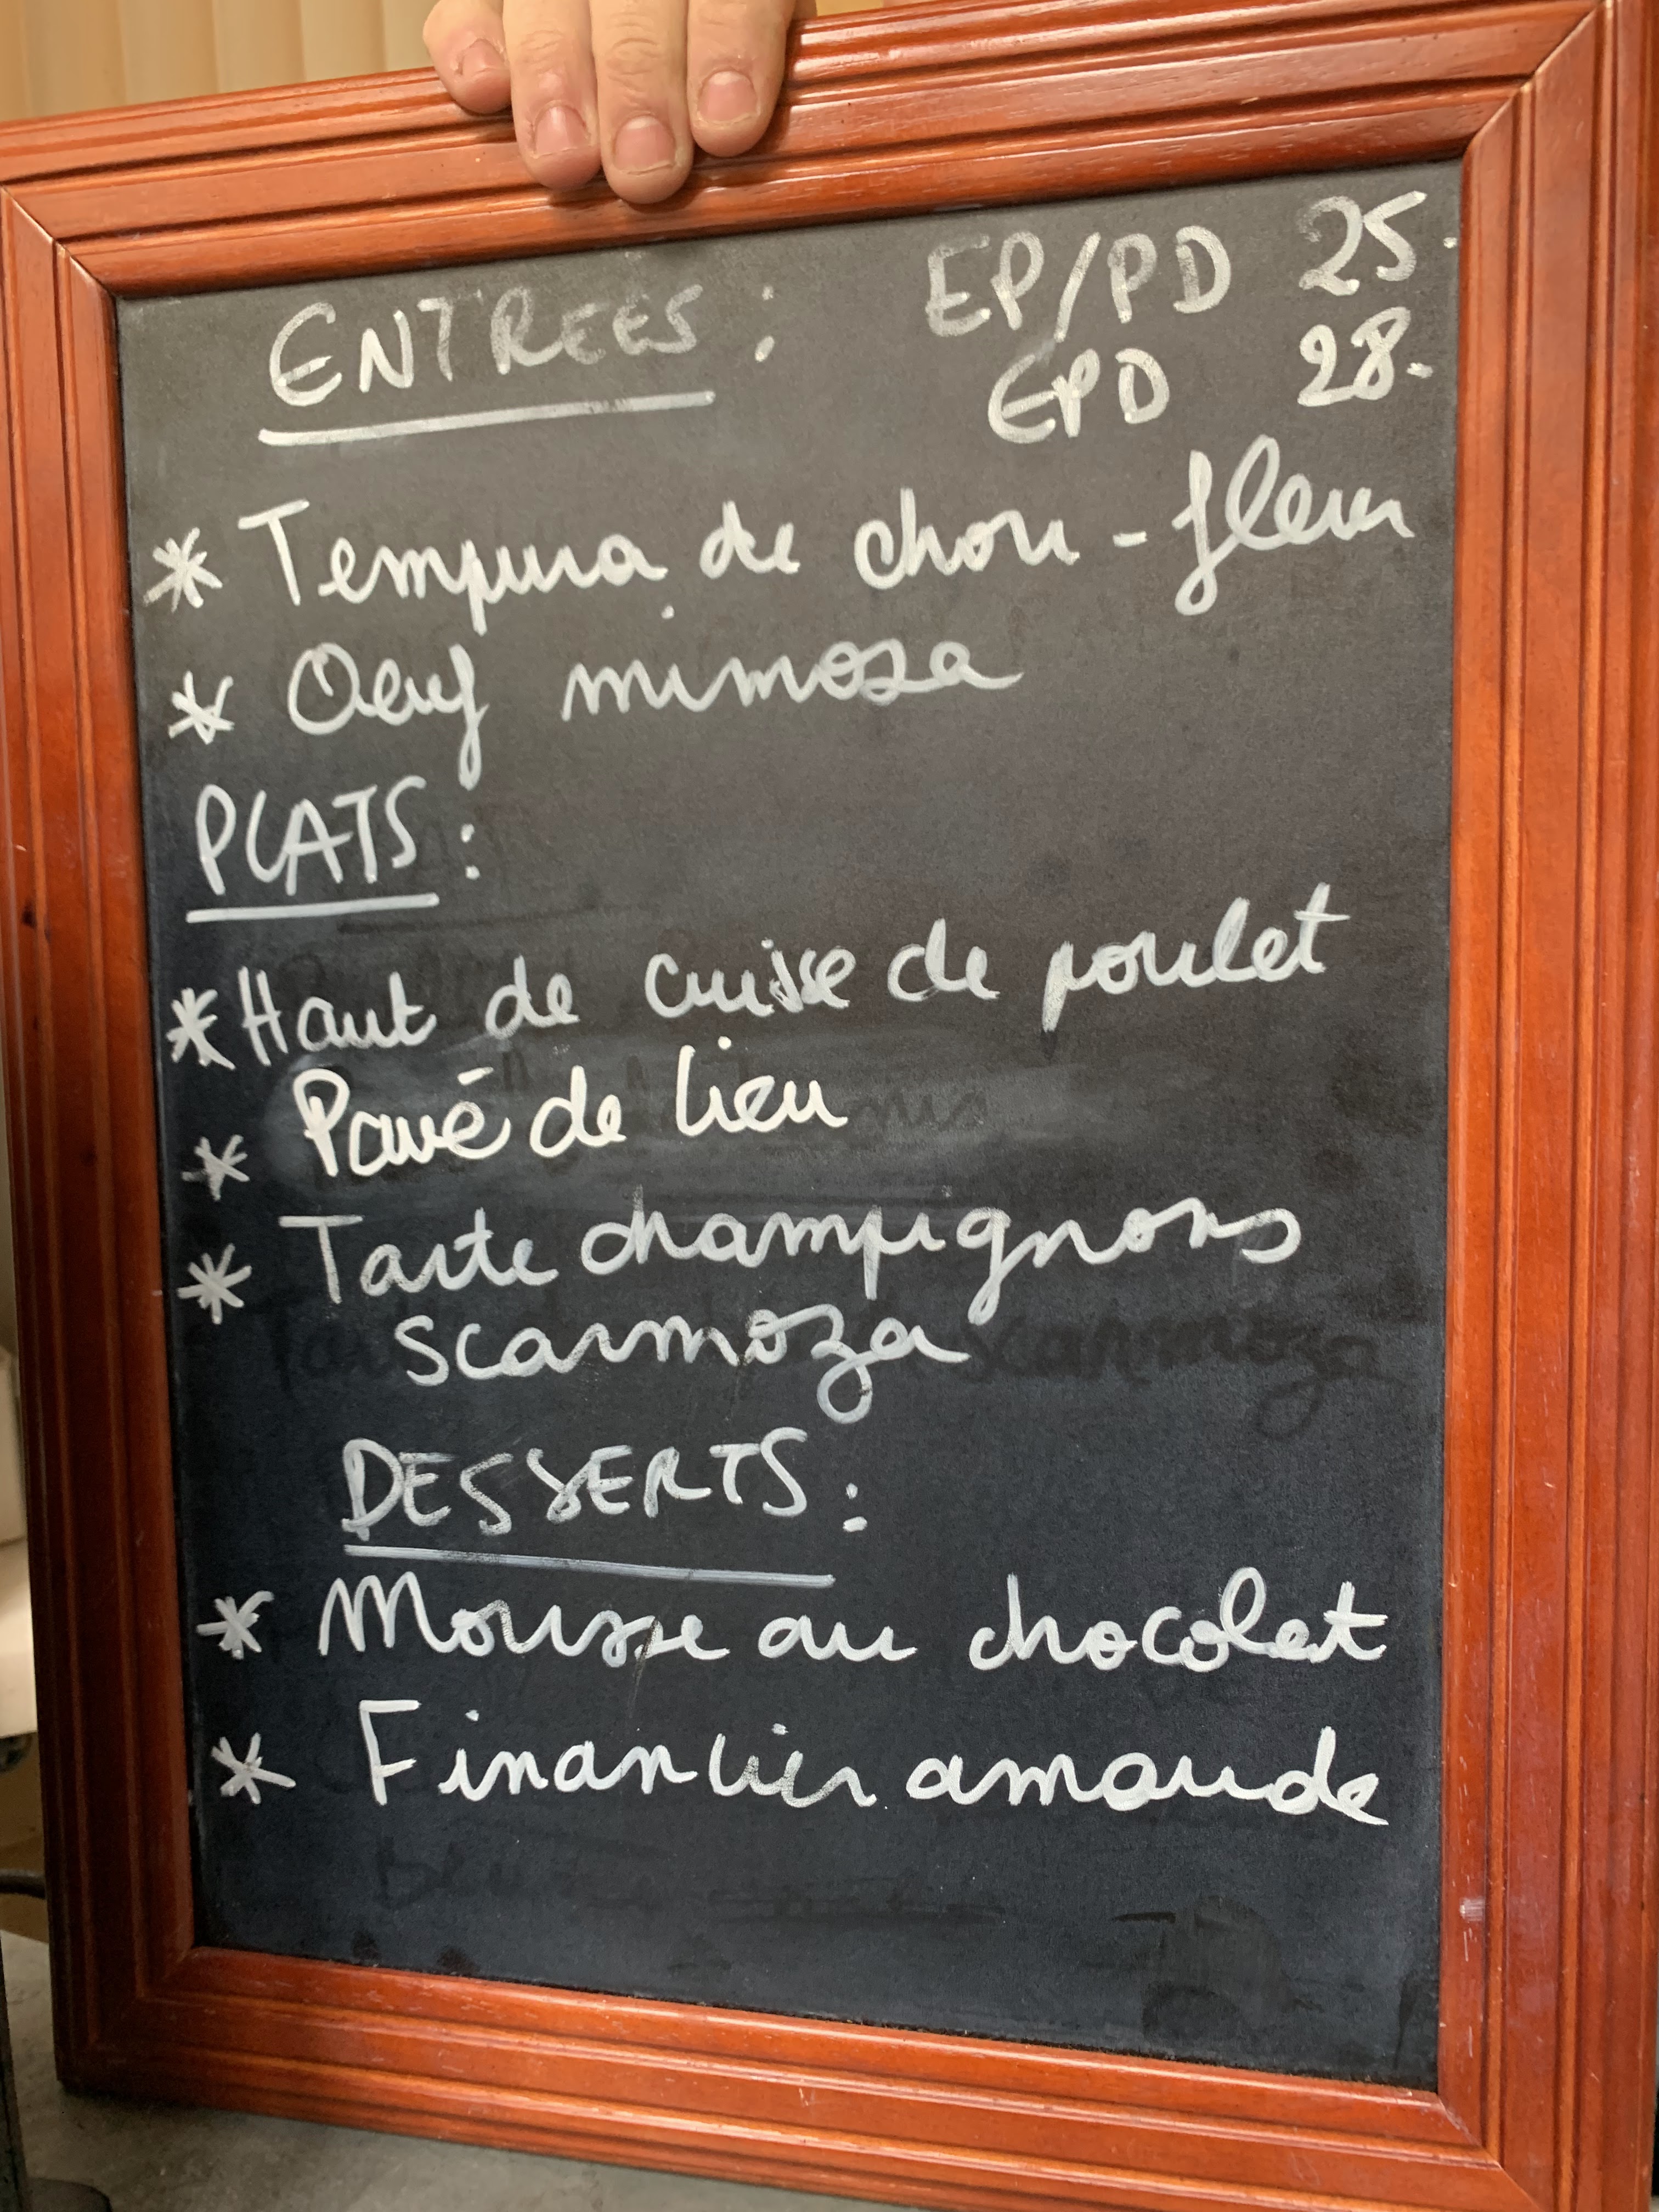 ENTREES : EP/PD 25.
EPD 28.
* Tempura de chou-fleur
* Oeuf mimosa
PLATS :
* Haut de cuisse de poulet
* Pavé de lieu
* Tarte champignons
scarmoza
DESSERTS :
* Mousse au chocolat
* Financier amande